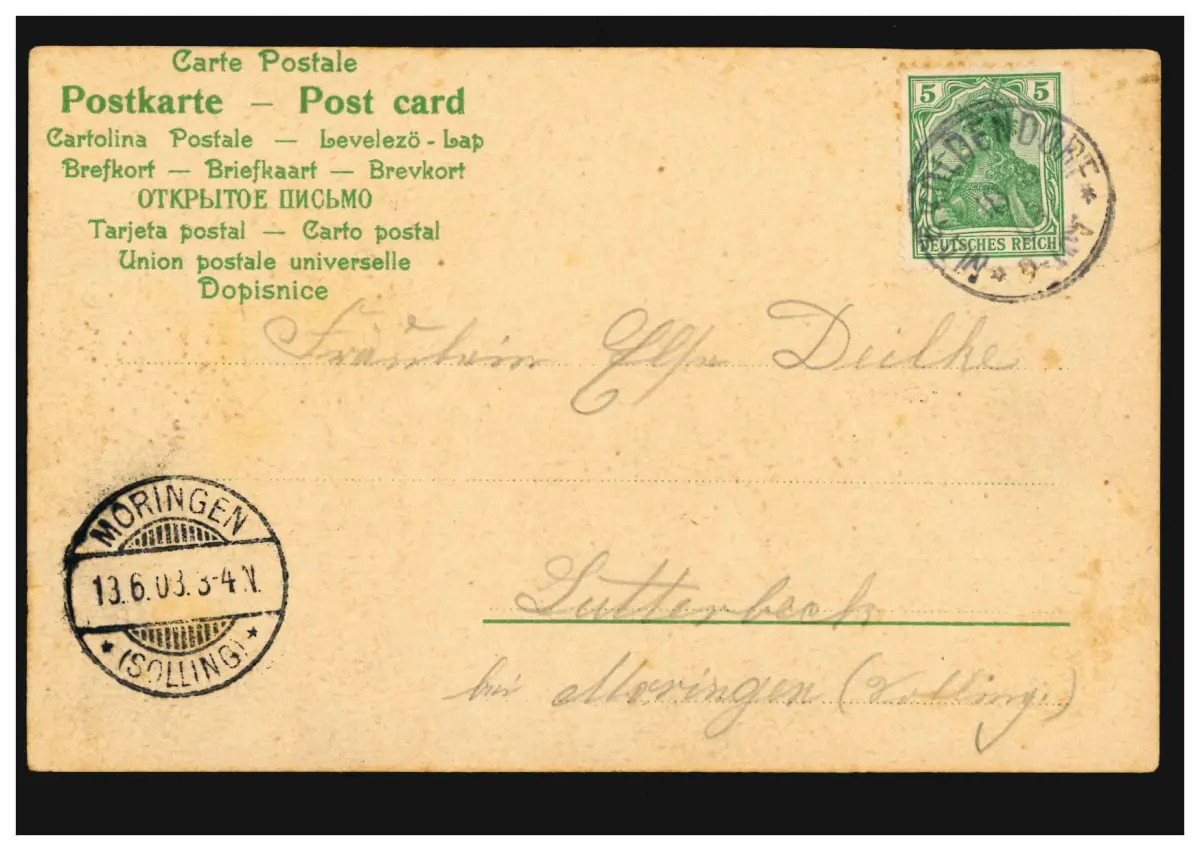 Carte Postale
Postkarte — Post card
Cartolina Postale — Levelezö - Lap
Brefkort — Briefkaart — Brevkort
ОТКРЫТОЕ ПИСЬМО
Tarjeta postal — Carto postal
Union postale universelle
Dopisnice
5 5
DEUTSCHES REICH
MARKOLDENDORF
Fräulein Else Deilke
Lutterbeck
bei Moringen (Solling.)
MORINGEN
13.6.03.3-4 N.
* (SOLLING) *